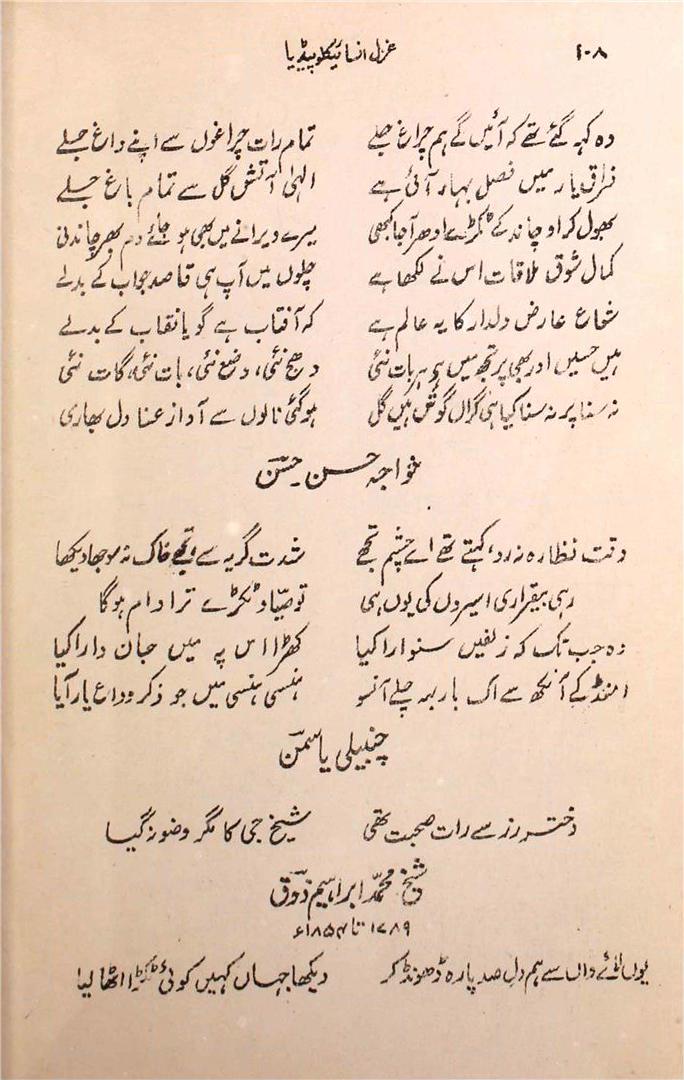 ۱۰۸ غزل انسائیکلوپیڈیا
وہ کہہ گئے تھے کہ آئیں گے ہم چراغ جلے تمام رات چراغوں سے اپنے داغ جلے
فراق یار میں فصل بہار آئی ہے الہٰی آتش گل سے تمام باغ جلے
بھول کر او چاند کے ٹکڑے ادھر آ جا کبھی میرے ویرانے میں بھی ہو جائے دم بھر چاندنی
کمال شوق ملاقات اس نے لکھا ہے چلوں میں آپ ہی قاصد جواب کے بدلے
شعاع عارض دلدار کا یہ عالم ہے کہ آفتاب ہے گویا نقاب کے بدلے
ہیں حسیں اور بھی پر تجھ میں ہے ہر بات نئی دھج نئی، وضع نئی، بات نئی، گات نئی
نہ سنا پر نہ سنا کیا ہی گراں گوش ہیں گل ہو گئی نالوں سے آواز عنادل بھاری
خواجہ حسن حسن
وقت نظارہ نہ رو، کہتے تھے اے چشم تجھے شدت گریہ سے تجھے خاک نہ سوجھا دیکھا
رہی بیقراری اسیروں کی یوں ہی تو صیاد ٹکڑے ترا دام ہوگا
وہ جب تک کہ زلفیں سنوارا کیا کھڑا اس پہ میں جان وارا کیا
امنڈ کے آنکھ سے اک بار بہہ چلے آنسو ہنسی ہنسی میں جو ذکر وداع یار آیا
چنبیلی یاسمن
دختر رز سے رات صحبت تھی شیخ جی کا مگر وضو نہ گیا
شیخ محمد ابراہیم ذوق
۱۷۸۹ تا ۱۸۵۴ء
یوں لائے واں سے ہم دل صد پارہ ڈھونڈ کر دیکھا جہاں کہیں کوئی ٹکڑا اٹھا لیا